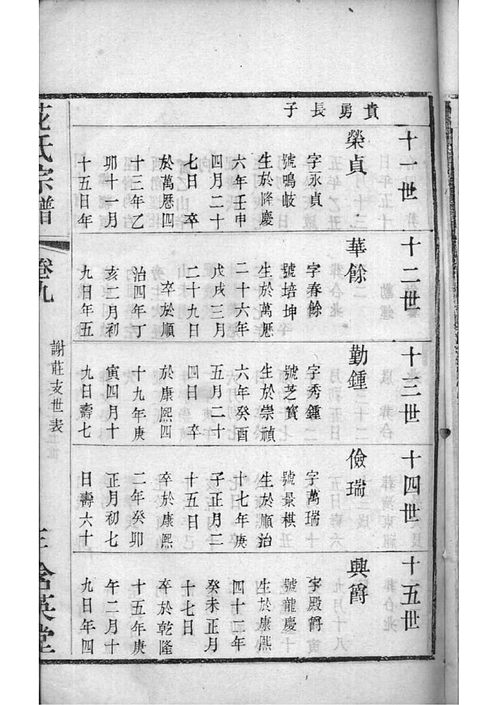 貴勇長子
十一世
榮貞
字永貞
號鳴岐
生於隆慶
六年壬申
四月二十
七日 卒
於萬厯四
十三年乙
卯十一月
十五日年
十二世
華餘
字春餘
號培坤
生於萬厯
二十六年
戊戌三月
二十九日
卒於順
治四年丁
亥二月初
九日年五
十三世
勤鍾
字秀鍾
號芝賓
生於崇禎
六年癸酉
五月二十
四日 卒
於康熙四
十九年庚
寅四月十
九日壽七
十四世
儉瑞
字萬瑞十
號景棋
生於順治
十七年庚
子正月二
十五日
卒於康熙
二年癸卯
正月初七
日壽六十
十五世
興爵
字殿爵
號龍慶十
生於康熙
四十二年
癸未正月
十七日
卒於乾隆
十五年庚
午二月十
九日年四
花氏宗譜
卷九
謝莊支世表
含英堂